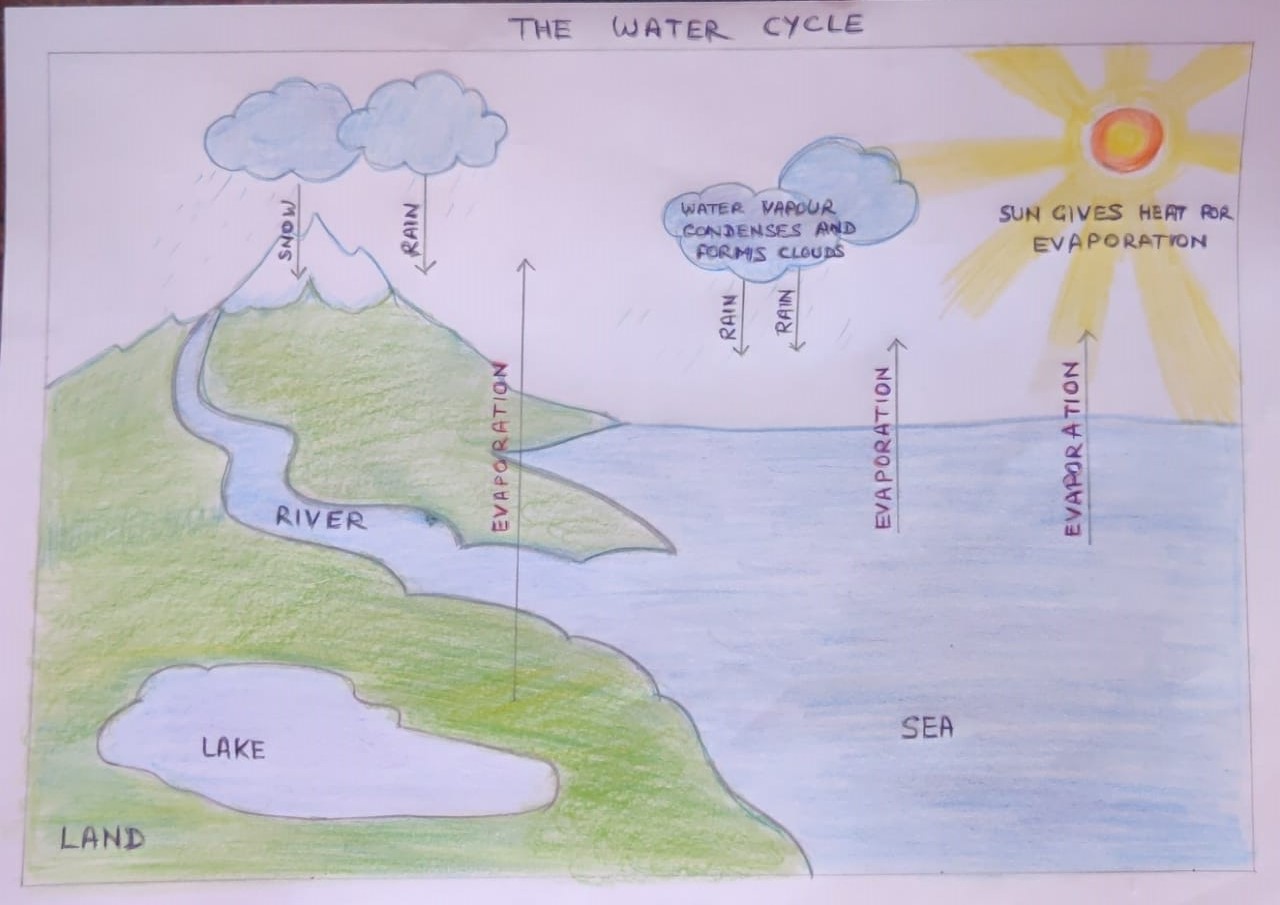 THE WATER CYCLE
SNOW
RAIN
WATER VAPOUR
CONDENSES AND
FORMS CLOUDS
SUN GIVES HEAT FOR
EVAPORATION
RAIN
RAIN
EVAPORATION
EVAPORATION
EVAPORATION
RIVER
LAKE
SEA
LAND